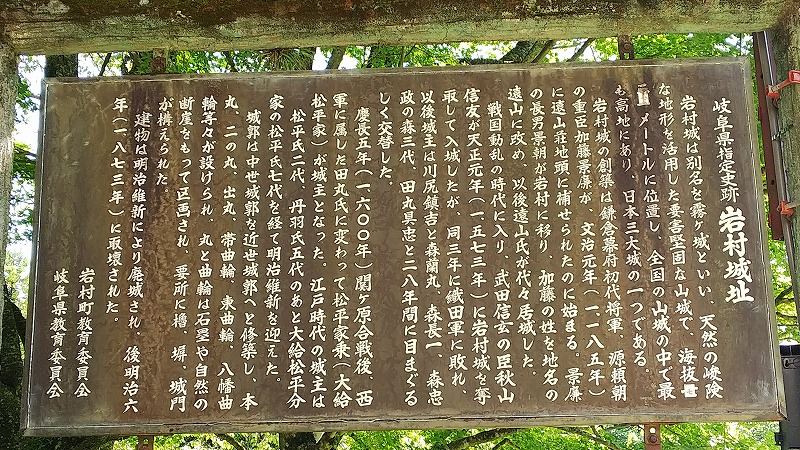 岐阜県指定史跡 岩村城址
岩村城は別名を霧ヶ城といい、天然の峻険
な地形を活用した要害堅固な山城で、海抜
メートルに位置し、全国の山城の中で最
も高地にあり、日本三大城の一つである。
岩村城の創築は鎌倉幕府初代将軍、源頼朝
の重臣加藤景廉が、文治元年(一一八五年)
に遠山荘地頭に補せられたのに始まる。景廉
の長男景朝が岩村に移り、加藤の姓を地名の
遠山に改め、以後遠山氏が代々居城した。
戦国動乱の時代に入り、武田信玄の臣秋山
信友が天正元年(一五七三年)に岩村城を奪
取して入城したが、同三年に織田軍に敗れ、
以後城主は川尻鎮吉と森蘭丸、森長一、森忠
政の森三代、田丸具忠と二八年間に目まぐる
しく交替した。
慶長五年(一六〇〇年)関ヶ原合戦後、西
軍に属した田丸氏に変わって松平家乗(大給
松平家)が城主となった。江戸時代の城主は
松平氏二代、丹羽氏五代のあと大給松平分
家の松平氏七代を経て明治維新を迎えた。
城郭は中世城郭を近世城郭へと修築し、本
丸、二の丸、出丸、帯曲輪、東曲輪、八幡曲
輪等々が設けられ、丸と曲輪は石塁や自然の
断崖をもって区画され、要所に櫓、塀、城門
が構えられた
建物は明治維新により廃城され、後明治六
年(一八七三年)に取壊された。
岩村町教育委員会
岐阜県教育委員会